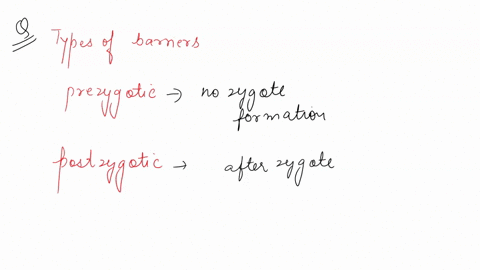 Q Types of barriers
prezygotic → no zygote
formation
postzygotic → after zygote